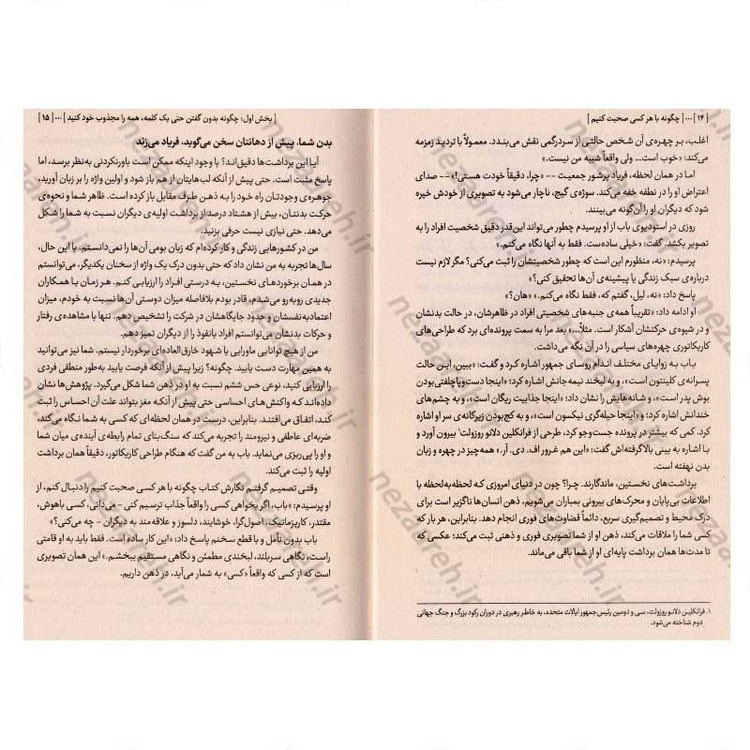 [ ۱۴ ] ... [ چگونه با هر کسی صحبت کنیم ]
اغلب، بر چهره‌ی آن شخص حالتی از سردرگمی نقش می‌بندد. معمولاً با تردید زمزمه
می‌کند: «خوب است... ولی واقعاً شبیه من نیست.»
اما در همان لحظه، فریاد پرشور جمعیت –– «چرا، دقیقاً خودت هستی!» –– صدای
اعتراض او را در نطفه خفه می‌کند. سوژه‌ی گیج، ناچار می‌شود به تصویری از خودش خیره
شود که دیگران او را آن‌گونه می‌بینند.
روزی در استودیوی باب از او پرسیدم چطور می‌تواند این‌قدر دقیق شخصیت افراد را به
تصویر بکشد. گفت: «خیلی ساده‌ست. فقط به آنها نگاه می‌کنم.»
پرسیدم: «نه، منظورم این است که چطور شخصیتشان را ثبت می‌کنی؟ مگر لازم نیست
درباره‌ی سبک زندگی یا پیشینه‌ی آن‌ها تحقیق کنی؟»
پاسخ داد: «نه، لیل، گفتم که، فقط نگاه می‌کنم.» «هان؟»
او ادامه داد: «تقریباً همه‌ی جنبه‌های شخصیتی افراد در ظاهرشان، در حالت بدنشان
و در شیوه‌ی حرکتشان آشکار است. مثلاً...» بعد مرا به سمت پرونده‌ای برد که طراحی‌های
کاریکاتوری چهره‌های سیاسی را در آن نگه می‌داشت.
باب به زوایای مختلف اندام روسای جمهور اشاره کرد و گفت: «ببین، این حالت
پسرانه‌ی کلینتون است»، و به لبخند نیمه‌جانش اشاره کرد؛ «اینجا دست‌وپاچلفتی‌بودن
بوش پدر است»، و به شانه‌هایش را نشان داد؛ «اینجا جذابیت ریگان است»، و به چشم‌های
خندانش اشاره کرد؛ و «اینجا حیله‌گری نیکسون است»، و به کج‌بودن زیرکانه‌ی سر او اشاره
کرد. کمی که بیشتر در پرونده جست‌وجو کرد، طرحی از فرانکلین دلانو روزولت۱ بیرون آورد و
با اشاره به بینی بالاگرفته‌اش گفت: «این هم غرور اف. دی. آر.» همه‌چیز در چهره و زبان
بدن نهفته است.
برداشت‌های نخستین، ماندگارند. چرا؟ چون در دنیای امروزی که لحظه‌به‌لحظه با
اطلاعات بی‌پایان و محرک‌های بیرونی بمباران می‌شویم، ذهن انسان‌ها ناگزیر است برای
درک محیط و تصمیم‌گیری سریع، دائماً قضاوت‌های فوری انجام دهد. بنابراین، هر بار که
کسی شما را ملاقات می‌کند، ذهن او از شما تصویری فوری و ذهنی ثبت می‌کند؛ عکسی که
تا مدت‌ها همان برداشت پایه‌ای او از شما باقی می‌ماند.
۱. فرانکلین دلانو روزولت، سی و دومین رئیس‌جمهور ایالات متحده، به خاطر رهبری در دوران رکود بزرگ و جنگ جهانی
دوم شناخته می‌شود.
[ بخش اول: چگونه بدون گفتن حتی یک کلمه، همه را مجذوب خود کنید ] ... [ ۱۵ ]
بدن شما، پیش از دهانتان سخن می‌گوید، فریاد می‌زند
آیا این برداشت‌ها دقیق‌اند؟ با وجود اینکه ممکن است باورنکردنی به‌نظر برسد، اما
پاسخ مثبت است. حتی پیش از آنکه لب‌هایتان از هم باز شود و اولین واژه را بر زبان آورید،
جوهره‌ی وجودتان راه خود را به ذهن طرف مقابل باز کرده است. ظاهر شما و نحوه‌ی
حرکت بدنتان، بیش از هشتاد درصد از برداشت اولیه‌ی دیگران نسبت به شما را شکل
می‌دهد. حتی نیازی نیست حرفی بزنید.
من در کشورهایی زندگی و کار کرده‌ام که زبان بومی آن‌ها را نمی‌دانستم. با این حال،
سال‌ها تجربه به من نشان داد که حتی بدون درک یک واژه از سخنان یکدیگر، می‌توانستم
در همان برخوردهای نخستین، به‌درستی افراد را ارزیابی کنم. هر زمان با همکاران
جدیدی روبه‌رو می‌شدم، قادر بودم بلافاصله میزان دوستی آن‌ها نسبت به خودم، میزان
اعتمادبه‌نفسشان و حدود جایگاهشان در شرکت را تشخیص دهم. تنها با مشاهده‌ی رفتار
و حرکات بدنشان می‌توانستم افراد بانفوذ را از دیگران تمیز دهم.
من از هیچ توانایی ماورایی یا شهود خارق‌العاده‌ای برخوردار نیستم. شما نیز می‌توانید
به همین مهارت دست یابید. چگونه؟ زیرا پیش از آنکه فرصت یابید به‌طور منطقی فردی
را ارزیابی کنید، نوعی حس ششم نسبت به او در ذهن شما شکل می‌گیرد. پژوهش‌ها نشان
داده‌اند که واکنش‌های احساسی حتی پیش از آنکه مغز بتواند علت آن احساس را ثبت
کند، اتفاق می‌افتند. بنابراین، درست در همان لحظه‌ای که کسی به شما نگاه می‌کند،
ضربه‌ای عاطفی و نیرومند را تجربه می‌کند که سنگ‌بنای تمام رابطه‌ی آینده‌ی میان شما
و او را پی‌ریزی می‌نماید. باب به من گفت که هنگام طراحی کاریکاتور، دقیقاً همان برداشت
اولیه را ثبت می‌کند.
وقتی تصمیم گرفتم نگارش کتاب چگونه با هر کسی صحبت کنیم را دنبال کنم، از
او پرسیدم: «باب، اگر بخواهی کسی را واقعاً جذاب ترسیم کنی – می‌دانی، کسی باهوش،
مقتدر، کاریزماتیک، اصول‌گرا، خوشایند، دلسوز و علاقه‌مند به دیگران – چه می‌کنی؟»
باب بدون تأمل و با قطع سخنم پاسخ داد: «این کار ساده است. فقط باید به او قامتی
راست، نگاهی سربلند، لبخندی مطمئن و نگاهی مستقیم ببخشم.» این همان تصویری
است که از کسی که واقعاً «کسی» به شمار می‌آید، در ذهن داریم.
nezaareh.ir